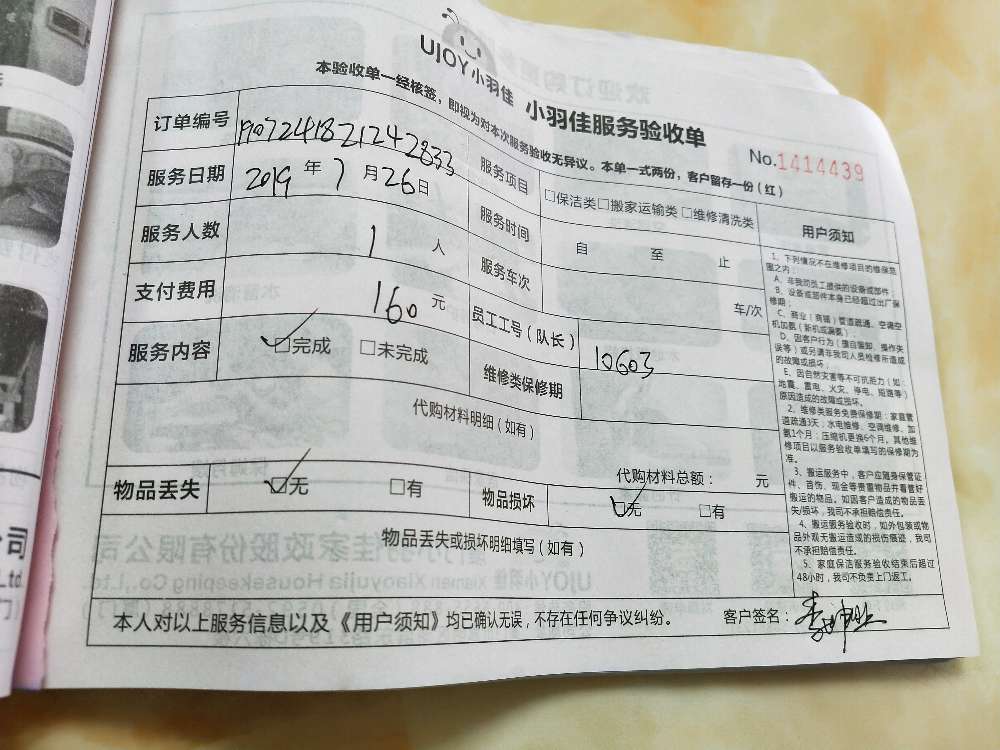 UJOY小羽佳 小羽佳服务验收单
No.1414439
本验收单一经核签，即视为对本次服务验收无异议。本单一式两份，客户留存一份（红）
订单编号 1907241821242833 服务项目 □保洁类□搬家运输类□维修清洗类
服务日期 2019年7月26日 服务时间 自 至 止
服务人数 1人 服务车次 车/次
支付费用 160元 员工工号（队长） 10603
服务内容 ☑完成 □未完成 维修类保修期
代购材料明细（如有）
代购材料总额： 元
物品丢失 ☑无 □有 物品损坏 ☑无 □有
物品丢失或损坏明细填写（如有）
用户须知
1、下列情况不在维修项目的维保范
围之内：
A、非我司员工提供的设备或部件；
B、设备或部件本身已经超过出厂保
修期；
C、商业（商铺）管道疏通、空调空
机加氨（新机或漏氨）
D、因客户行为（擅自装卸、操作失
误等）或另请非我司人员检修所造成
的故障或损坏；
E、因自然灾害等不可抗拒力（如：
地震、雷电、火灾、停电、短路等）
原因造成的故障或损坏。
2、维修类服务免费保修期：家庭管
道疏通3天；水电维修、空调维修、加
氨1个月；压缩机更换6个月。其他维
修项目以服务验收单填写的保修期为
准。
3、搬运服务中，客户应随身保管证
件、首饰、现金等贵重物品并看管好
搬运的物品。如因客户造成的物品丢
失/损坏，我司不承担赔偿责任。
4、搬运服务验收时，如外包装或物
品外观无搬运造成的损伤痕迹，我司
不承担赔偿责任。
5、家庭保洁服务验收结束后超过
48小时，我司不负责上门返工。
本人对以上服务信息以及《用户须知》均已确认无误，不存在任何争议纠纷。 客户签名：
司
Ltd.